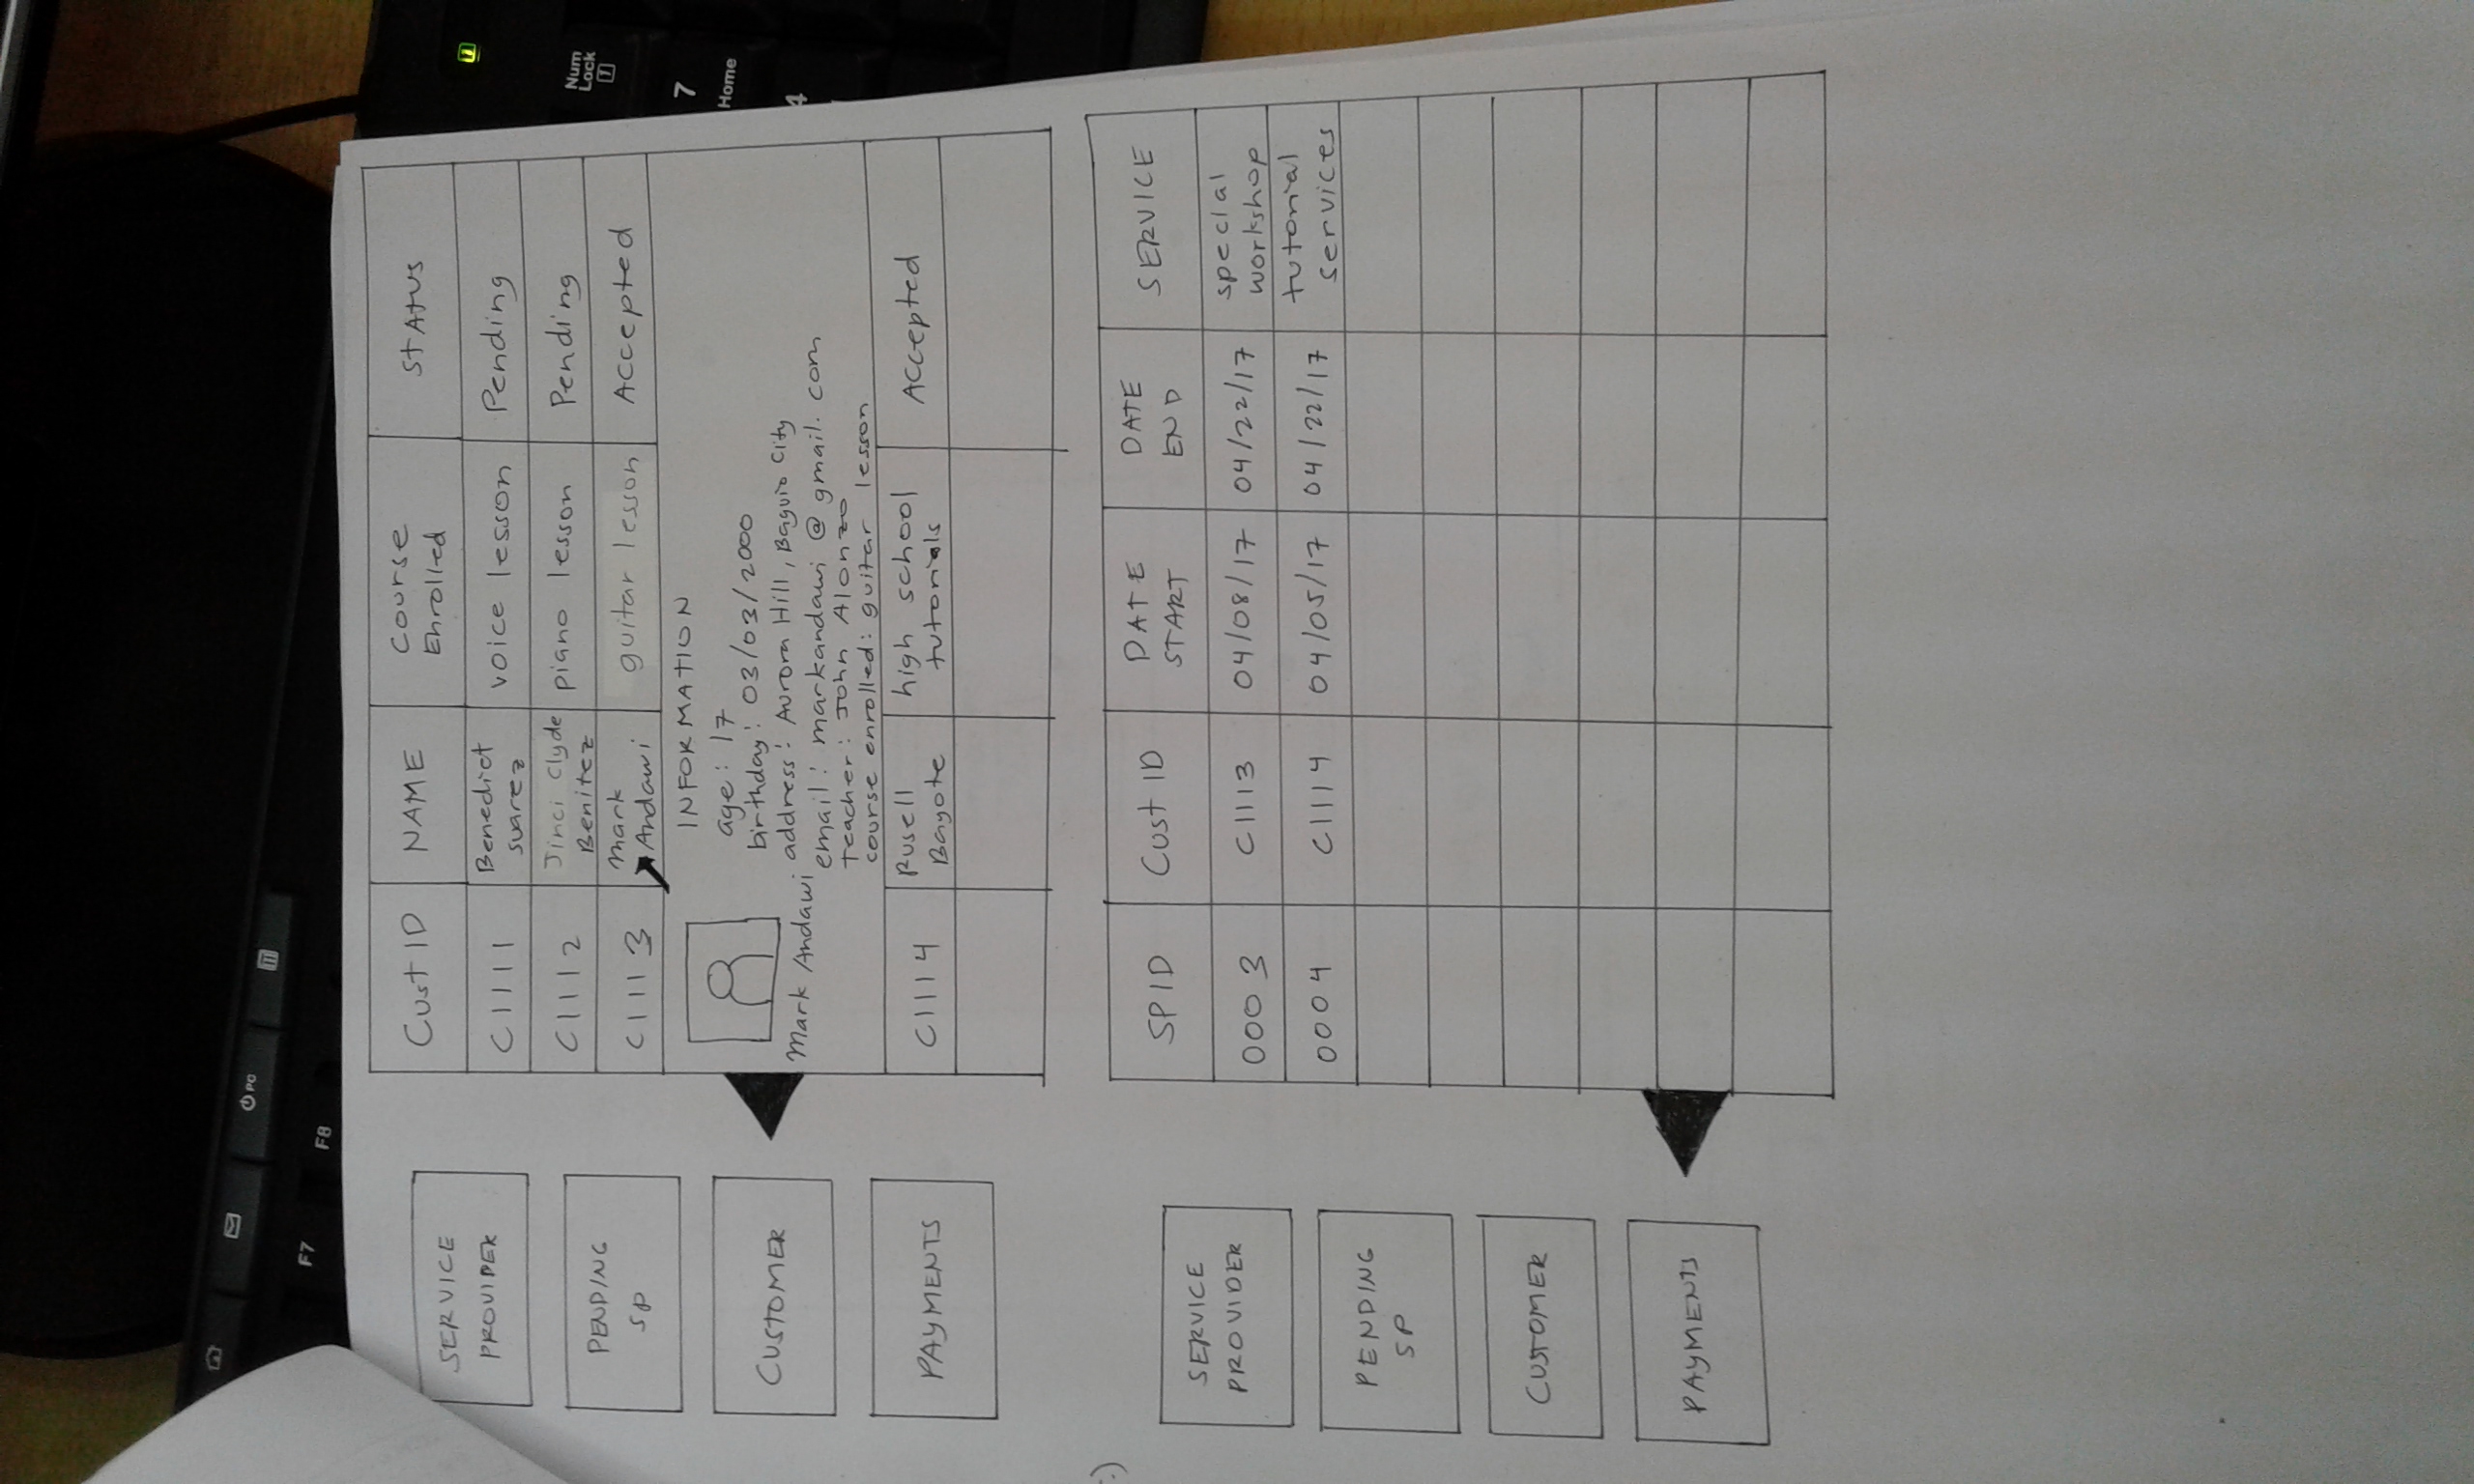 PC
F7
F8
Num
Lock
1
7
Home
4
SERVICE
PROVIDER
PENDING
SP
CUSTOMER
PAYMENTS
Cust ID NAME Course Enrolled STATUS
C1111 Benedict Suarez voice lesson Pending
C1112 Jinci Clyde Benitez piano lesson Pending
C1113 Mark Andawi guitar lesson Accepted
INFORMATION
age: 17
birthday: 03/03/2000
address: Aurora Hill, Baguio City
Mark Andawi
email: markandawi @ gmail. com
teacher: John Alonzo
course enrolled: guitar lesson
C1114 Rusell Bayote high school tutorials Accepted
:)
SERVICE
PROVIDER
PENDING
SP
CUSTOMER
PAYMENTS
SPID Cust ID DATE START DATE END SERVICE
0003 C1113 04/08/17 04/22/17 special workshop
0004 C1114 04/05/17 04/22/17 tutorial services